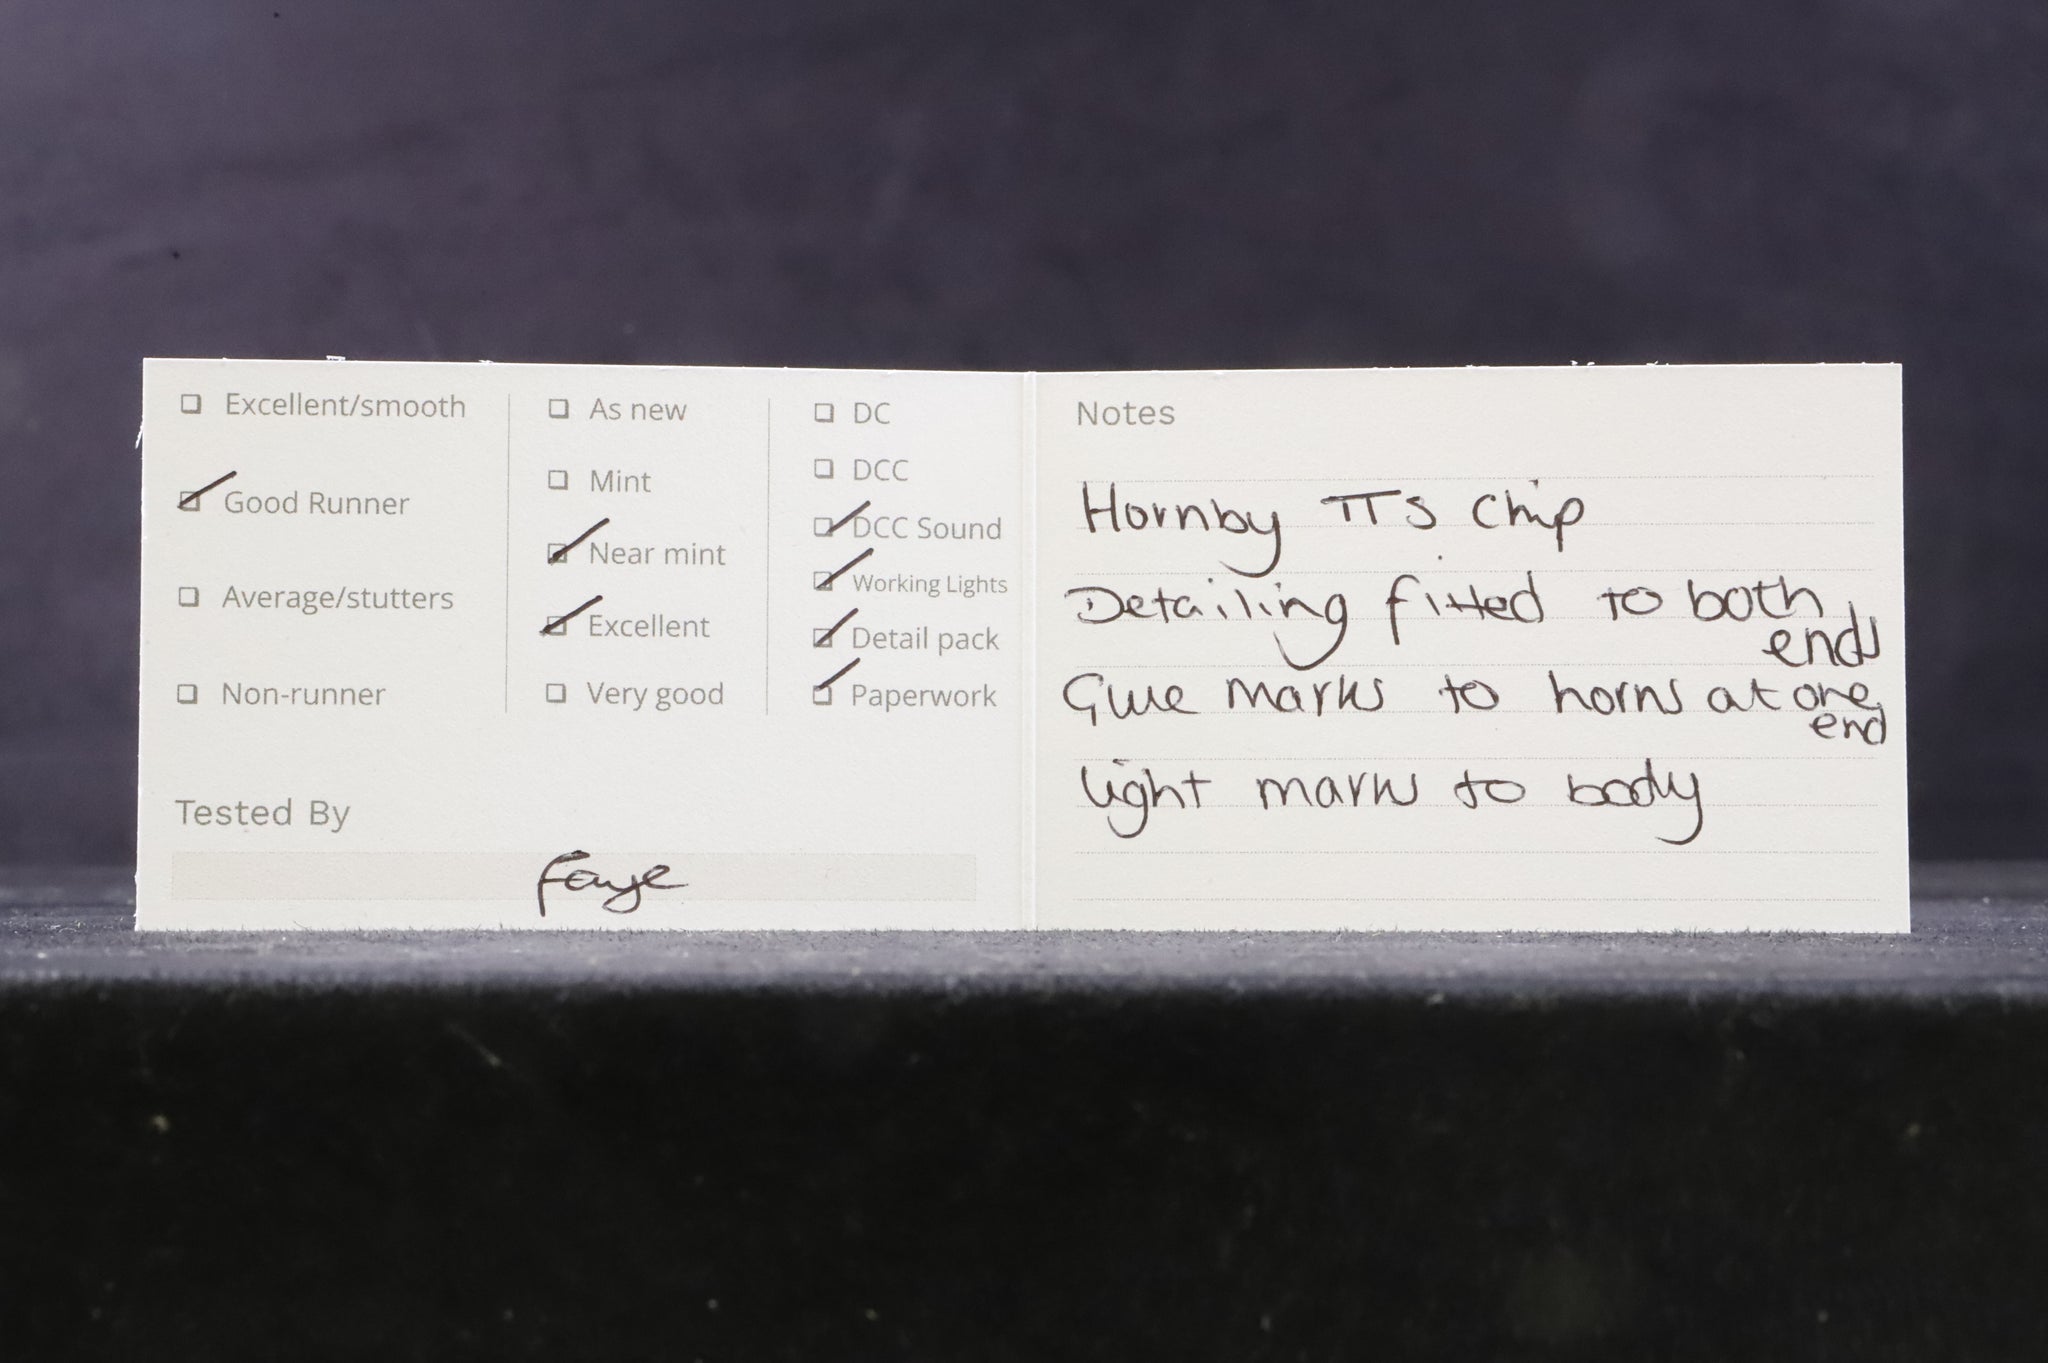 Excellent/smooth
Good Runner
Average/stutters
Non-runner
As new
Mint
Near mint
Excellent
Very good
DC
DCC
DCC Sound
Working Lights
Detail pack
Paperwork
Tested By
Faye
Notes
Hornby TTS Chip
Detailing fitted to both
ends
Glue marks to horns at one
end
light marks to body